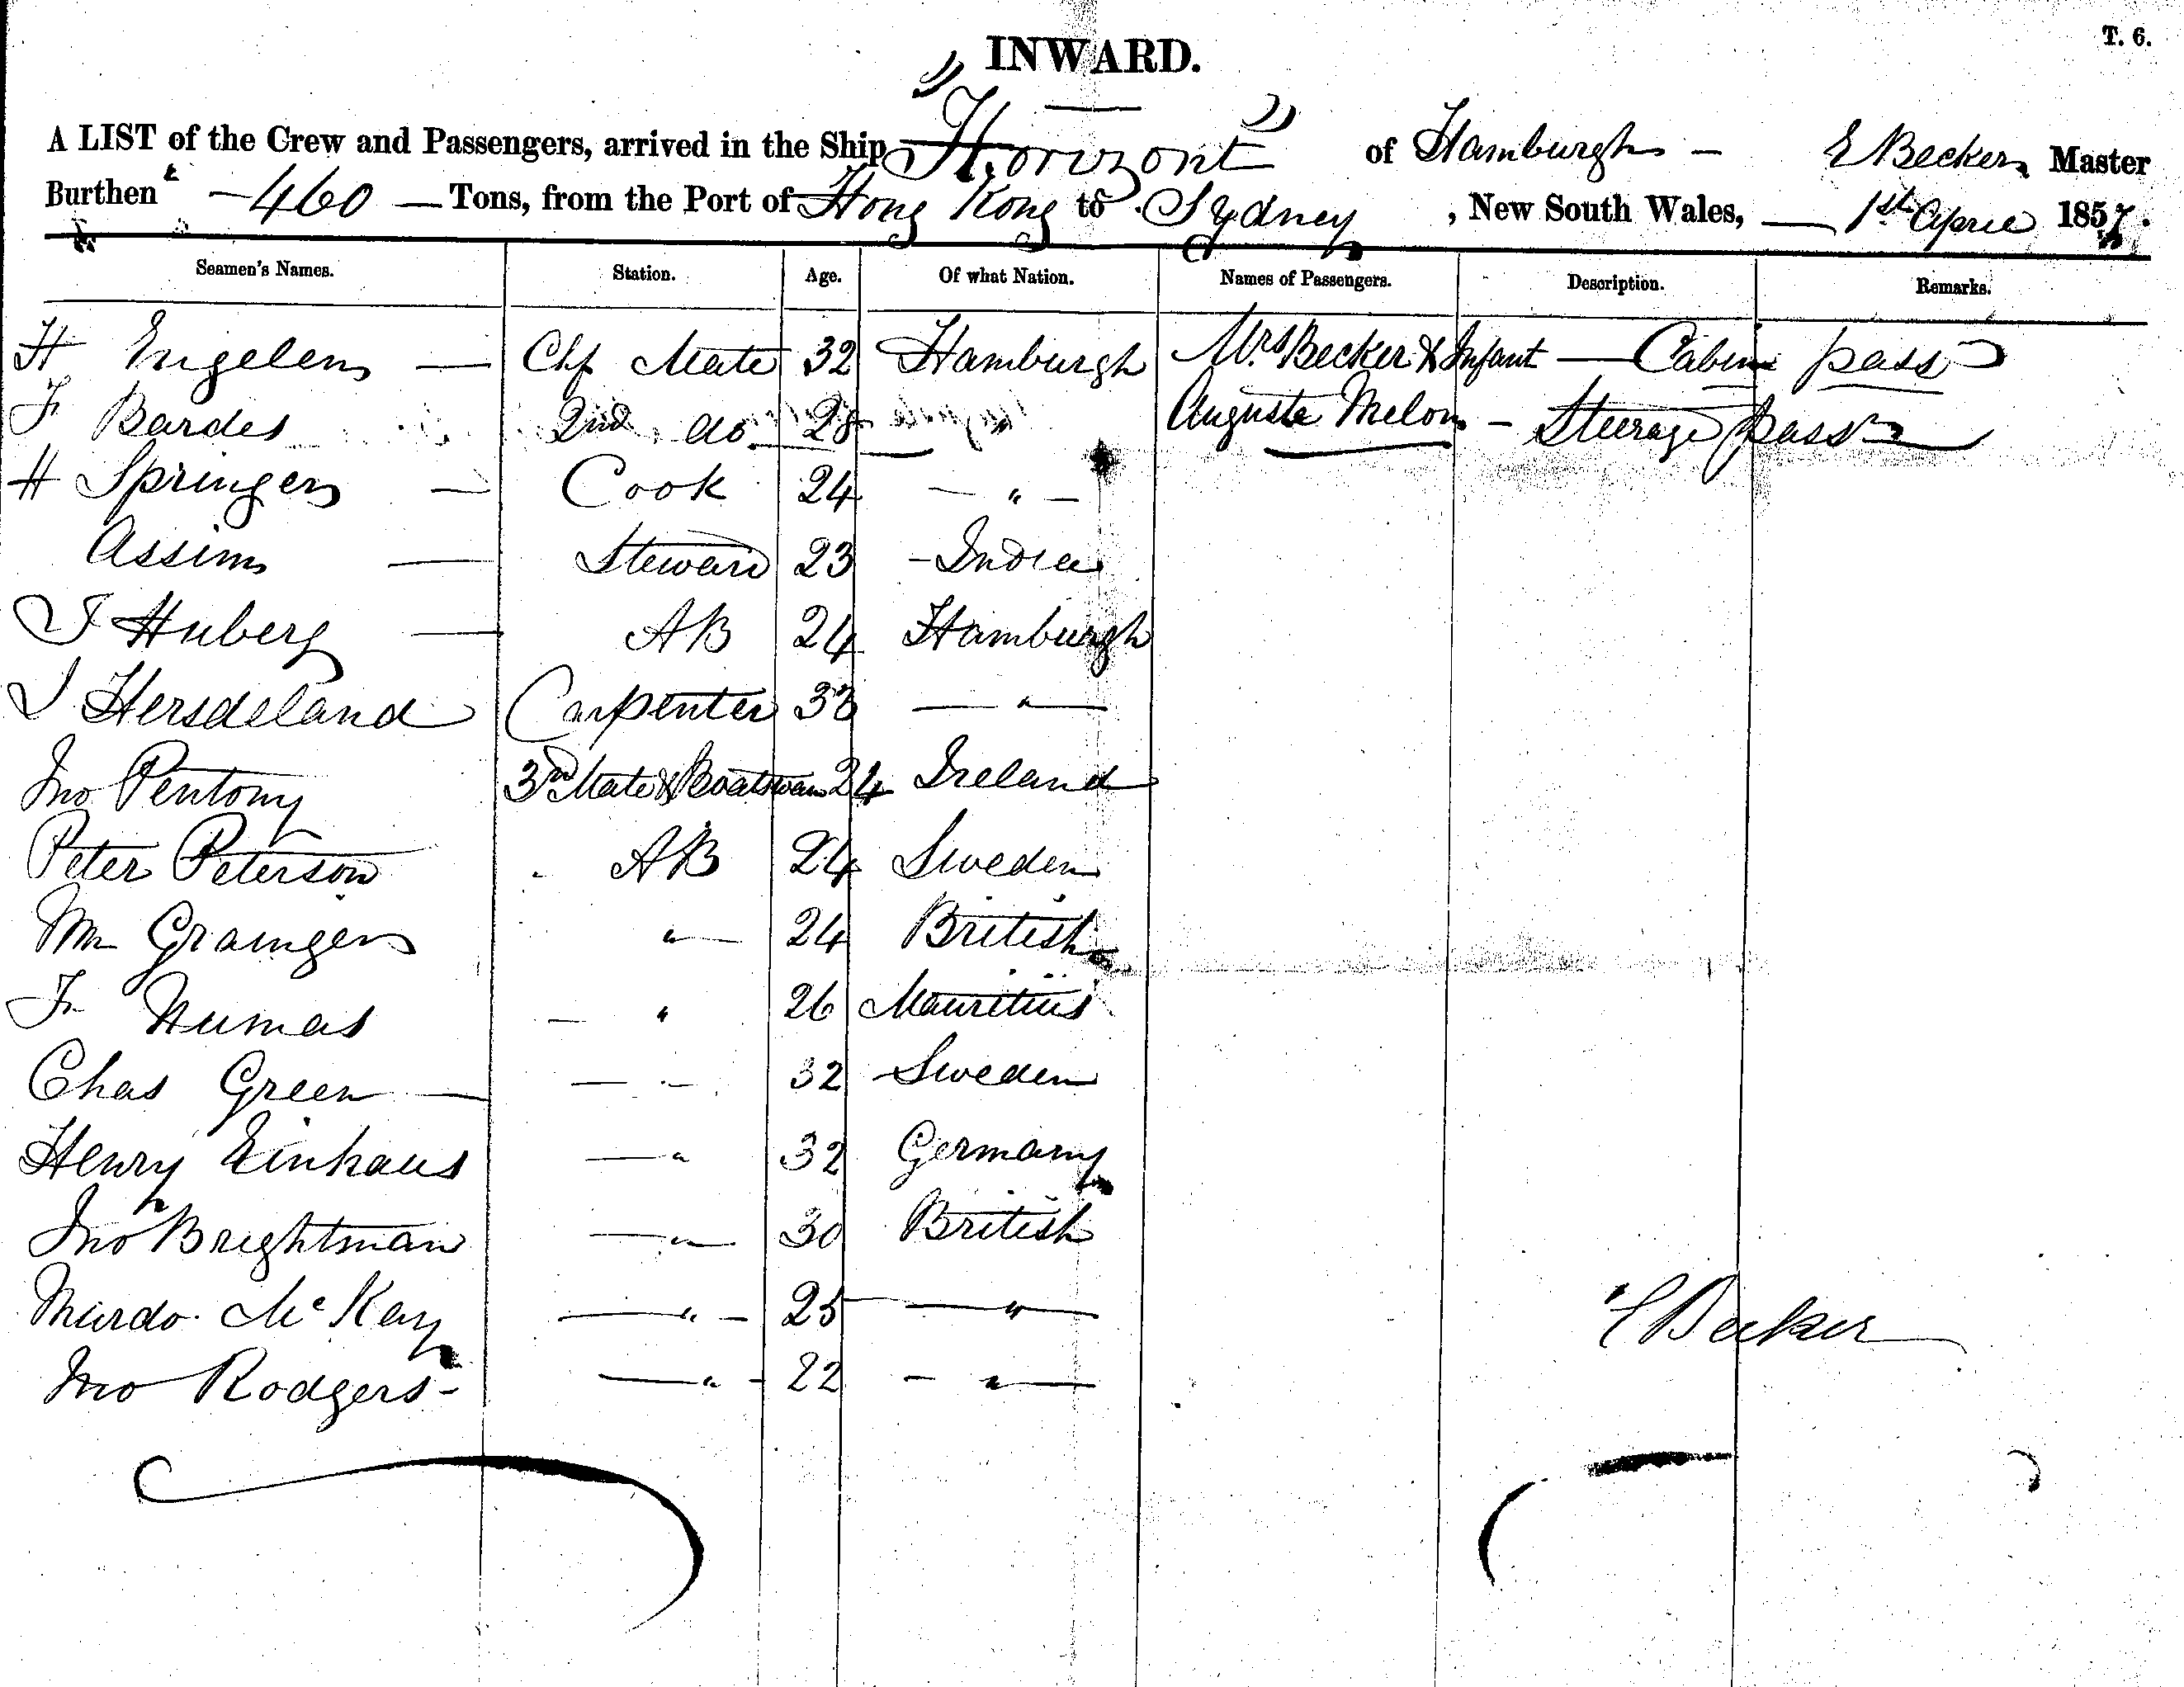 T. 6.
INWARD.
A LIST of the Crew and Passengers, arrived in the Ship "Horizont" of Hamburgh - E Becker, Master
Burthen - 460 - Tons, from the Port of Hong Kong to Sydney, New South Wales, - 1st April 1857.
Seamen's Names. Station. Age. Of what Nation. Names of Passengers. Description. Remarks.
H Engelen — Chf Mate 32 Hamburgh Mrs Becker & Infant — Cabin pass
F Bardes 2nd do. 28 " Auguste Melon - Steerage pass
H Springer — Cook 24 — " —
Assim — Steward 23 - India
J Huberg — AB 24 Hamburgh
J Hersdeland Carpenter 33 — " —
Jno Pentony 3rd Mate & Boatswain 24 Ireland
Peter Peterson AB 24 Sweden
Wm Grainger " — 24 British
Fr Numas — " 26 Mauritius
Chas Green — — " — 32 Sweden
Henry Einhaus — " 32 Germany
Jno Brightman — " — 30 British
Murdo McKay — " - 25 — " —
Jno Rodgers - — " - 22 - " —
E Becker